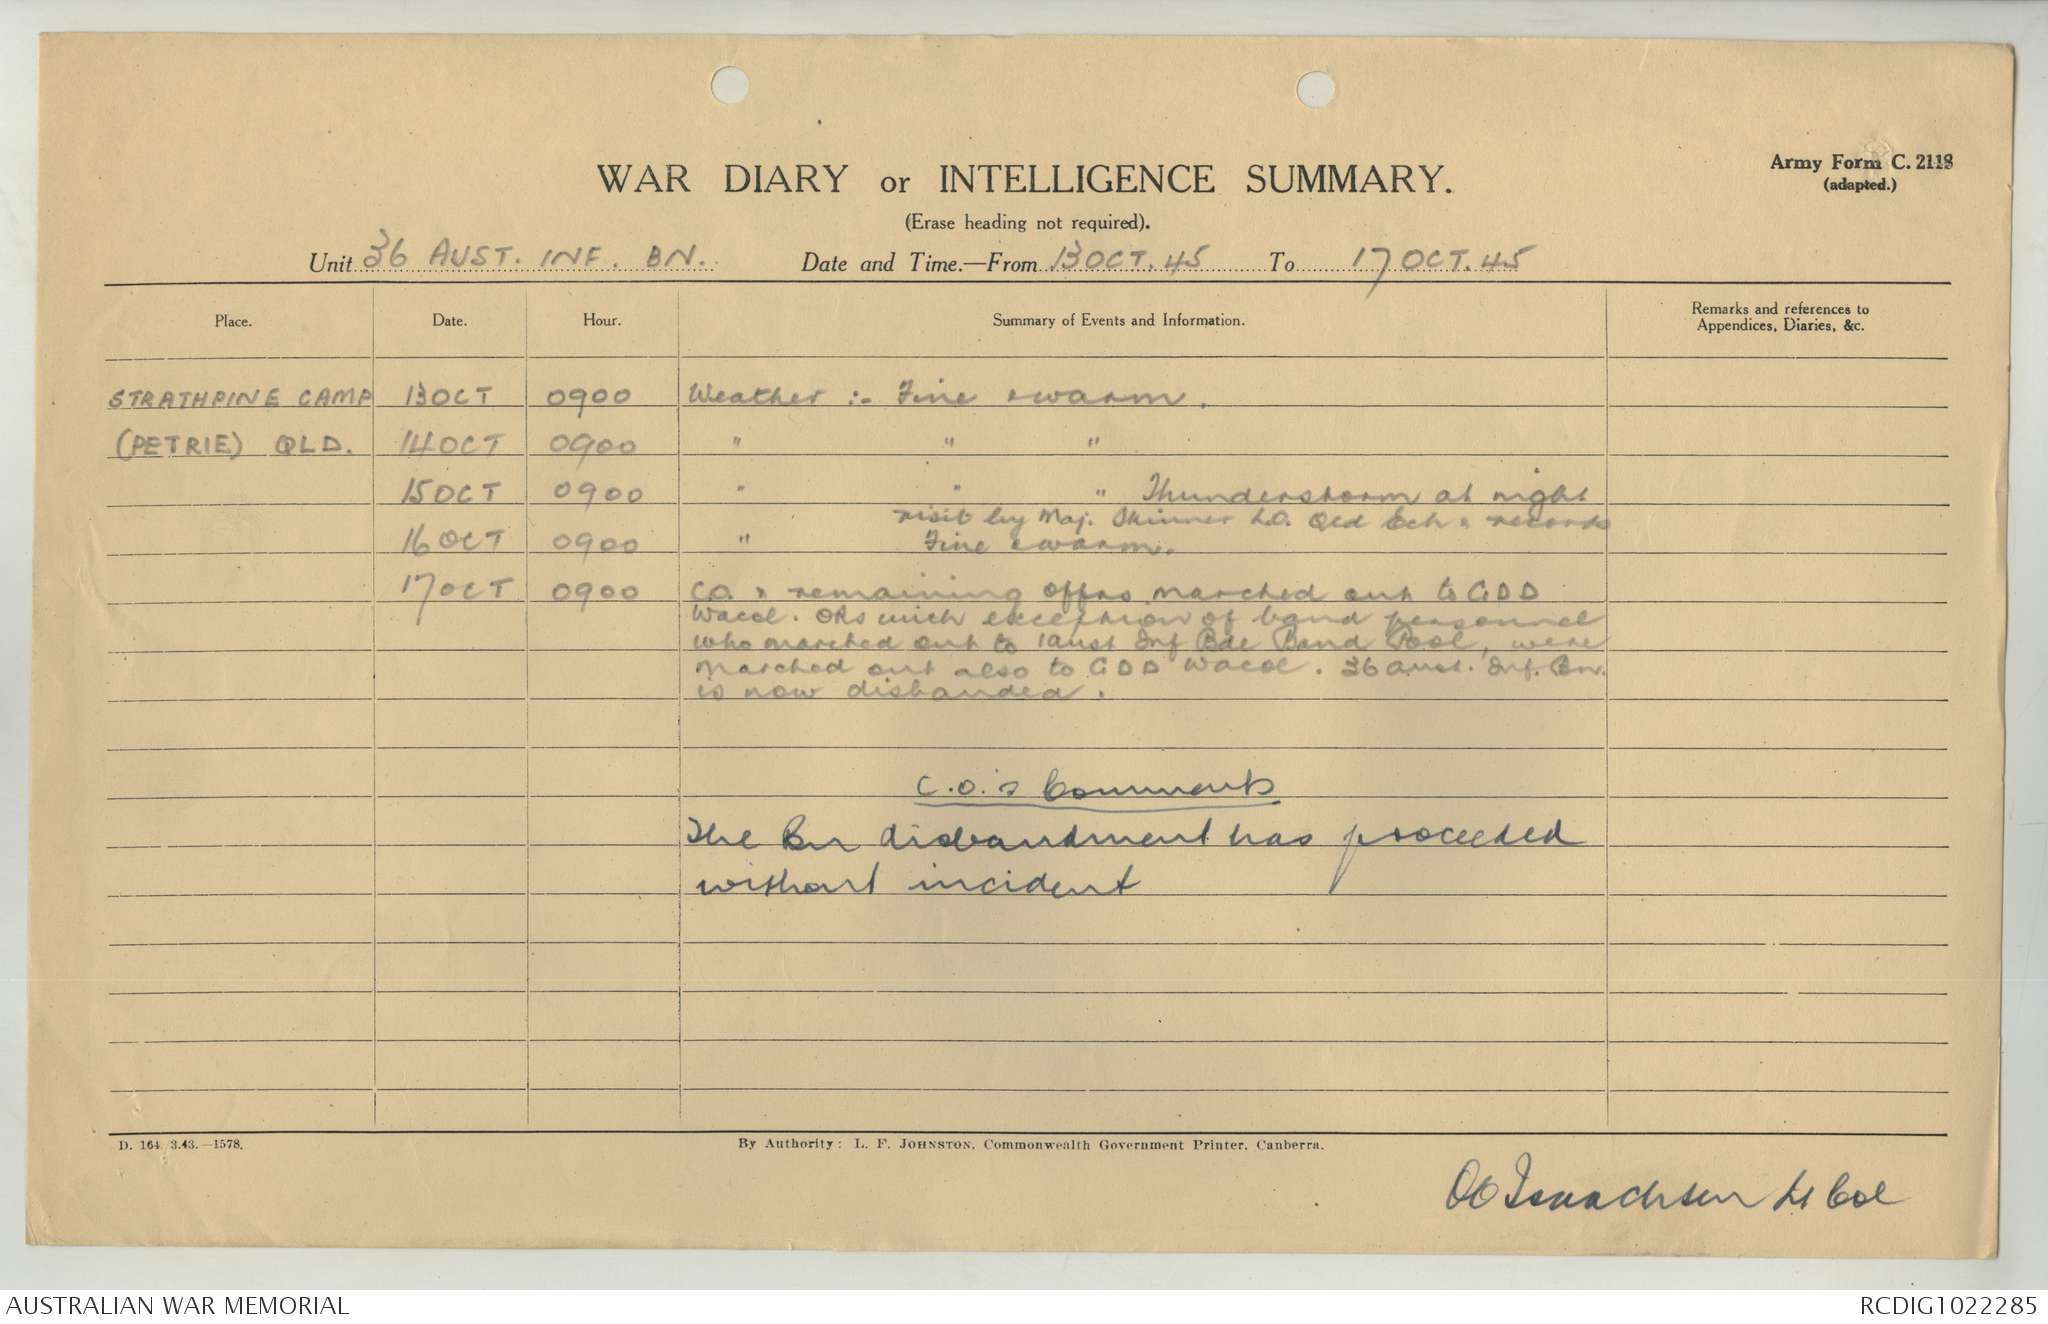 Army Form C. 2118
(adapted.)
WAR DIARY or INTELLIGENCE SUMMARY.
(Erase heading not required).
Unit 36 AUST. INF. BN. Date and Time.—From 13 OCT. 45 To 17 OCT. 45
Place. Date. Hour. Summary of Events and Information. Remarks and references to Appendices, Diaries, &c.
STRATHPINE CAMP 13 OCT 0900 Weather :- Fine & warm.
(PETRIE) QLD. 14 OCT 0900 " " "
15 OCT 0900 " " " Thunderstorm at night
visit by Maj. Skinner L.O. Qld Ech & records
16 OCT 0900 " Fine & warm.
17 OCT 0900 C.O. & remaining offrs marched out to GDD
Wacol. ORs with exception of band personnel
who marched out to 1 Aust Inf Bde Band Pool, were
marched out also to GDD Wacol. 36 Aust. Inf. Bn.
is now disbanded.
C.O.'s Comments
The Bn disbandment has proceeded
without incident
D. 164/3.43.—1578.
By Authority: L. F. JOHNSTON, Commonwealth Government Printer, Canberra.
OC Isaachsen Lt Col
AUSTRALIAN WAR MEMORIAL
RCDIG1022285